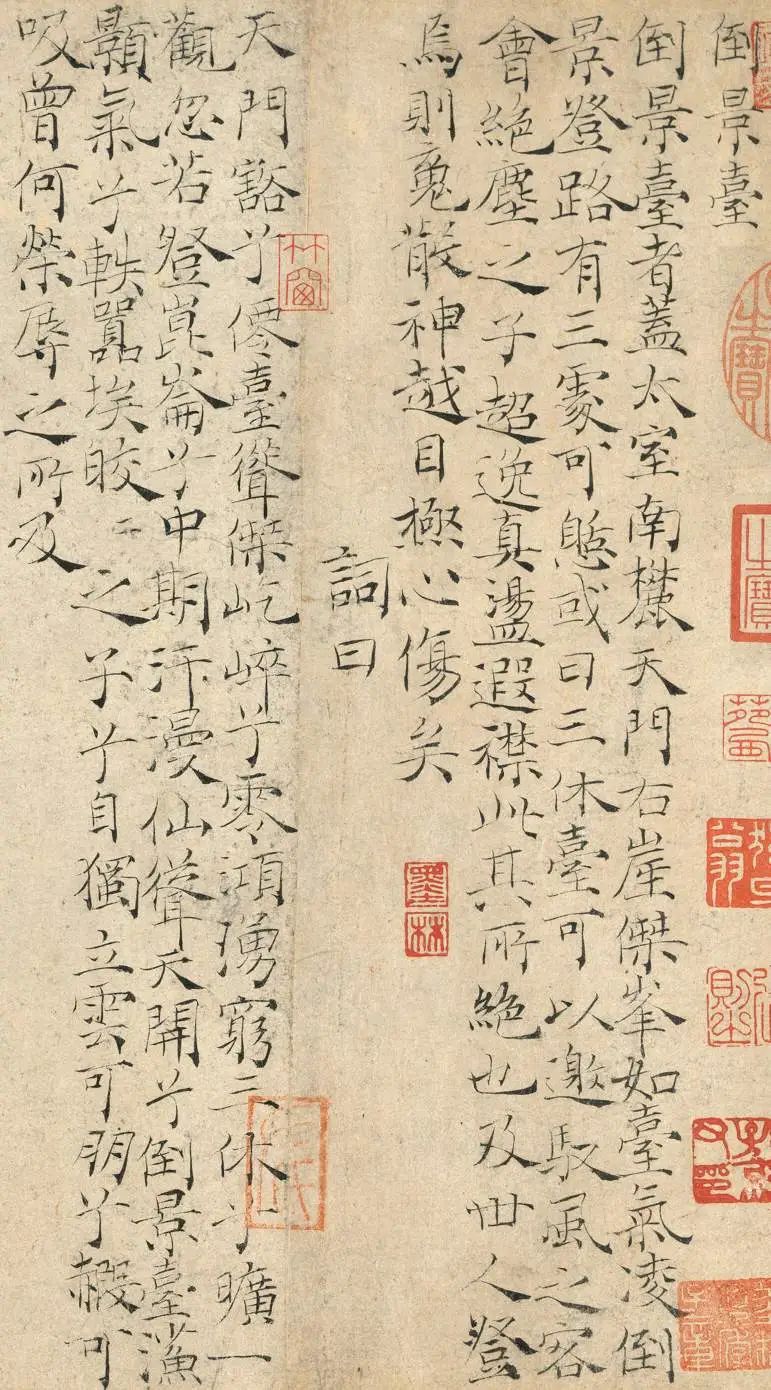 倒景臺
倒景臺者蓋太室南麓天門右崖傑峯如臺氣凌倒
景登路有三處可憩或曰三休臺可以邀馭風之客
會絕塵之子超逸真盪遐襟此其所絕也及世人登
焉則魂散神越目極心傷矣
墨林
詞曰
竹窗
天門豁兮僊臺聳傑屹崒兮零澒湧窮三休兮曠一
觀忽若登崑崙兮中期汗漫仙聳天開兮倒景臺
顥氣兮軼囂埃皎〻之子兮自獨立雲可朋兮赮可
吸曾何榮辱之所及